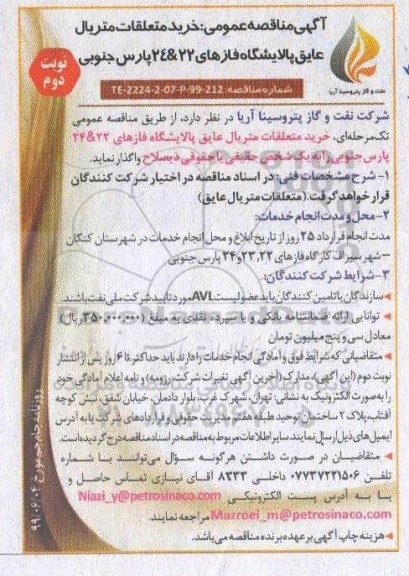 آگهی مناقصه عمومی: خرید متعلقات متریال
عایق پالایشگاه فازهای ۲۲&۲۴ پارس جنوبی
نوبت
دوم
نفت و گاز پتروسینا آریا
شماره مناقصه: TE-2224-2-07-P-99-212
شرکت نفت و گاز پتروسینا آریا در نظر دارد، از طریق مناقصه عمومی
تک‌مرحله‌ای، خرید متعلقات متریال عایق پالایشگاه فازهای ۲۲&۲۴
پارس جنوبی را به یک شخص حقیقی یا حقوقی ذیصلاح واگذار نماید.
۱- شرح مشخصات فنی: در اسناد مناقصه در اختیار شرکت کنندگان
قرار خواهد گرفت. (متعلقات متریال عایق)
۲- محل و مدت انجام خدمات:
مدت انجام قرارداد ۲۵ روز از تاریخ ابلاغ و محل انجام خدمات در شهرستان کنگان
– شهر سیراف کارگاه فازهای ۲۲، ۲۳ و ۲۴ پارس جنوبی
۳- شرایط شرکت کنندگان:
* سازندگان یا تامین کنندگان باید عضو لیست AVL مورد تایید شرکت ملی نفت باشند.
* توانایی ارائه ضمانتنامه بانکی و یا سپرده نقدی به مبلغ (۳۵۰،۰۰۰،۰۰۰) ریال
معادل سی و پنج میلیون تومان
* متقاضیانی که شرایط فوق و آمادگی انجام خدمات را دارند باید حداکثر تا ۶ روز پس از انتشار
نوبت دوم (این آگهی)، مدارک (آخرین آگهی تغییرات شرکت، رزومه) و نامه اعلام آمادگی خود
را به صورت الکترونیک به نشانی: تهران، شهرک غرب، بلوار دادمان، خیابان شفق، نبش کوچه
آفتاب، پلاک ۲ ساختمان توحید طبقه هفتم، مدیریت حقوقی و قراردادهای شرکت یا به آدرس
ایمیل‌های ذیل ارسال نمایند. سایر اطلاعات مربوط به مناقصه در اسناد مناقصه درج گردیده است.
* متقاضیان در صورت داشتن هرگونه سؤال می‌توانند با شماره
تلفن ۰۷۷۳۷۲۲۱۵۰۶ داخلی ۸۳۳۳ آقای نیازی تماس حاصل و
یا به آدرس پست الکترونیکی Niazi_y@petrosinaco.com
Mazroei_m@petrosinaco.com مراجعه نمایند.
* هزینه چاپ آگهی بر عهده برنده مناقصه می‌باشد.
روزنامه جام جم مورخ ۹۹/۰۶/۰۴